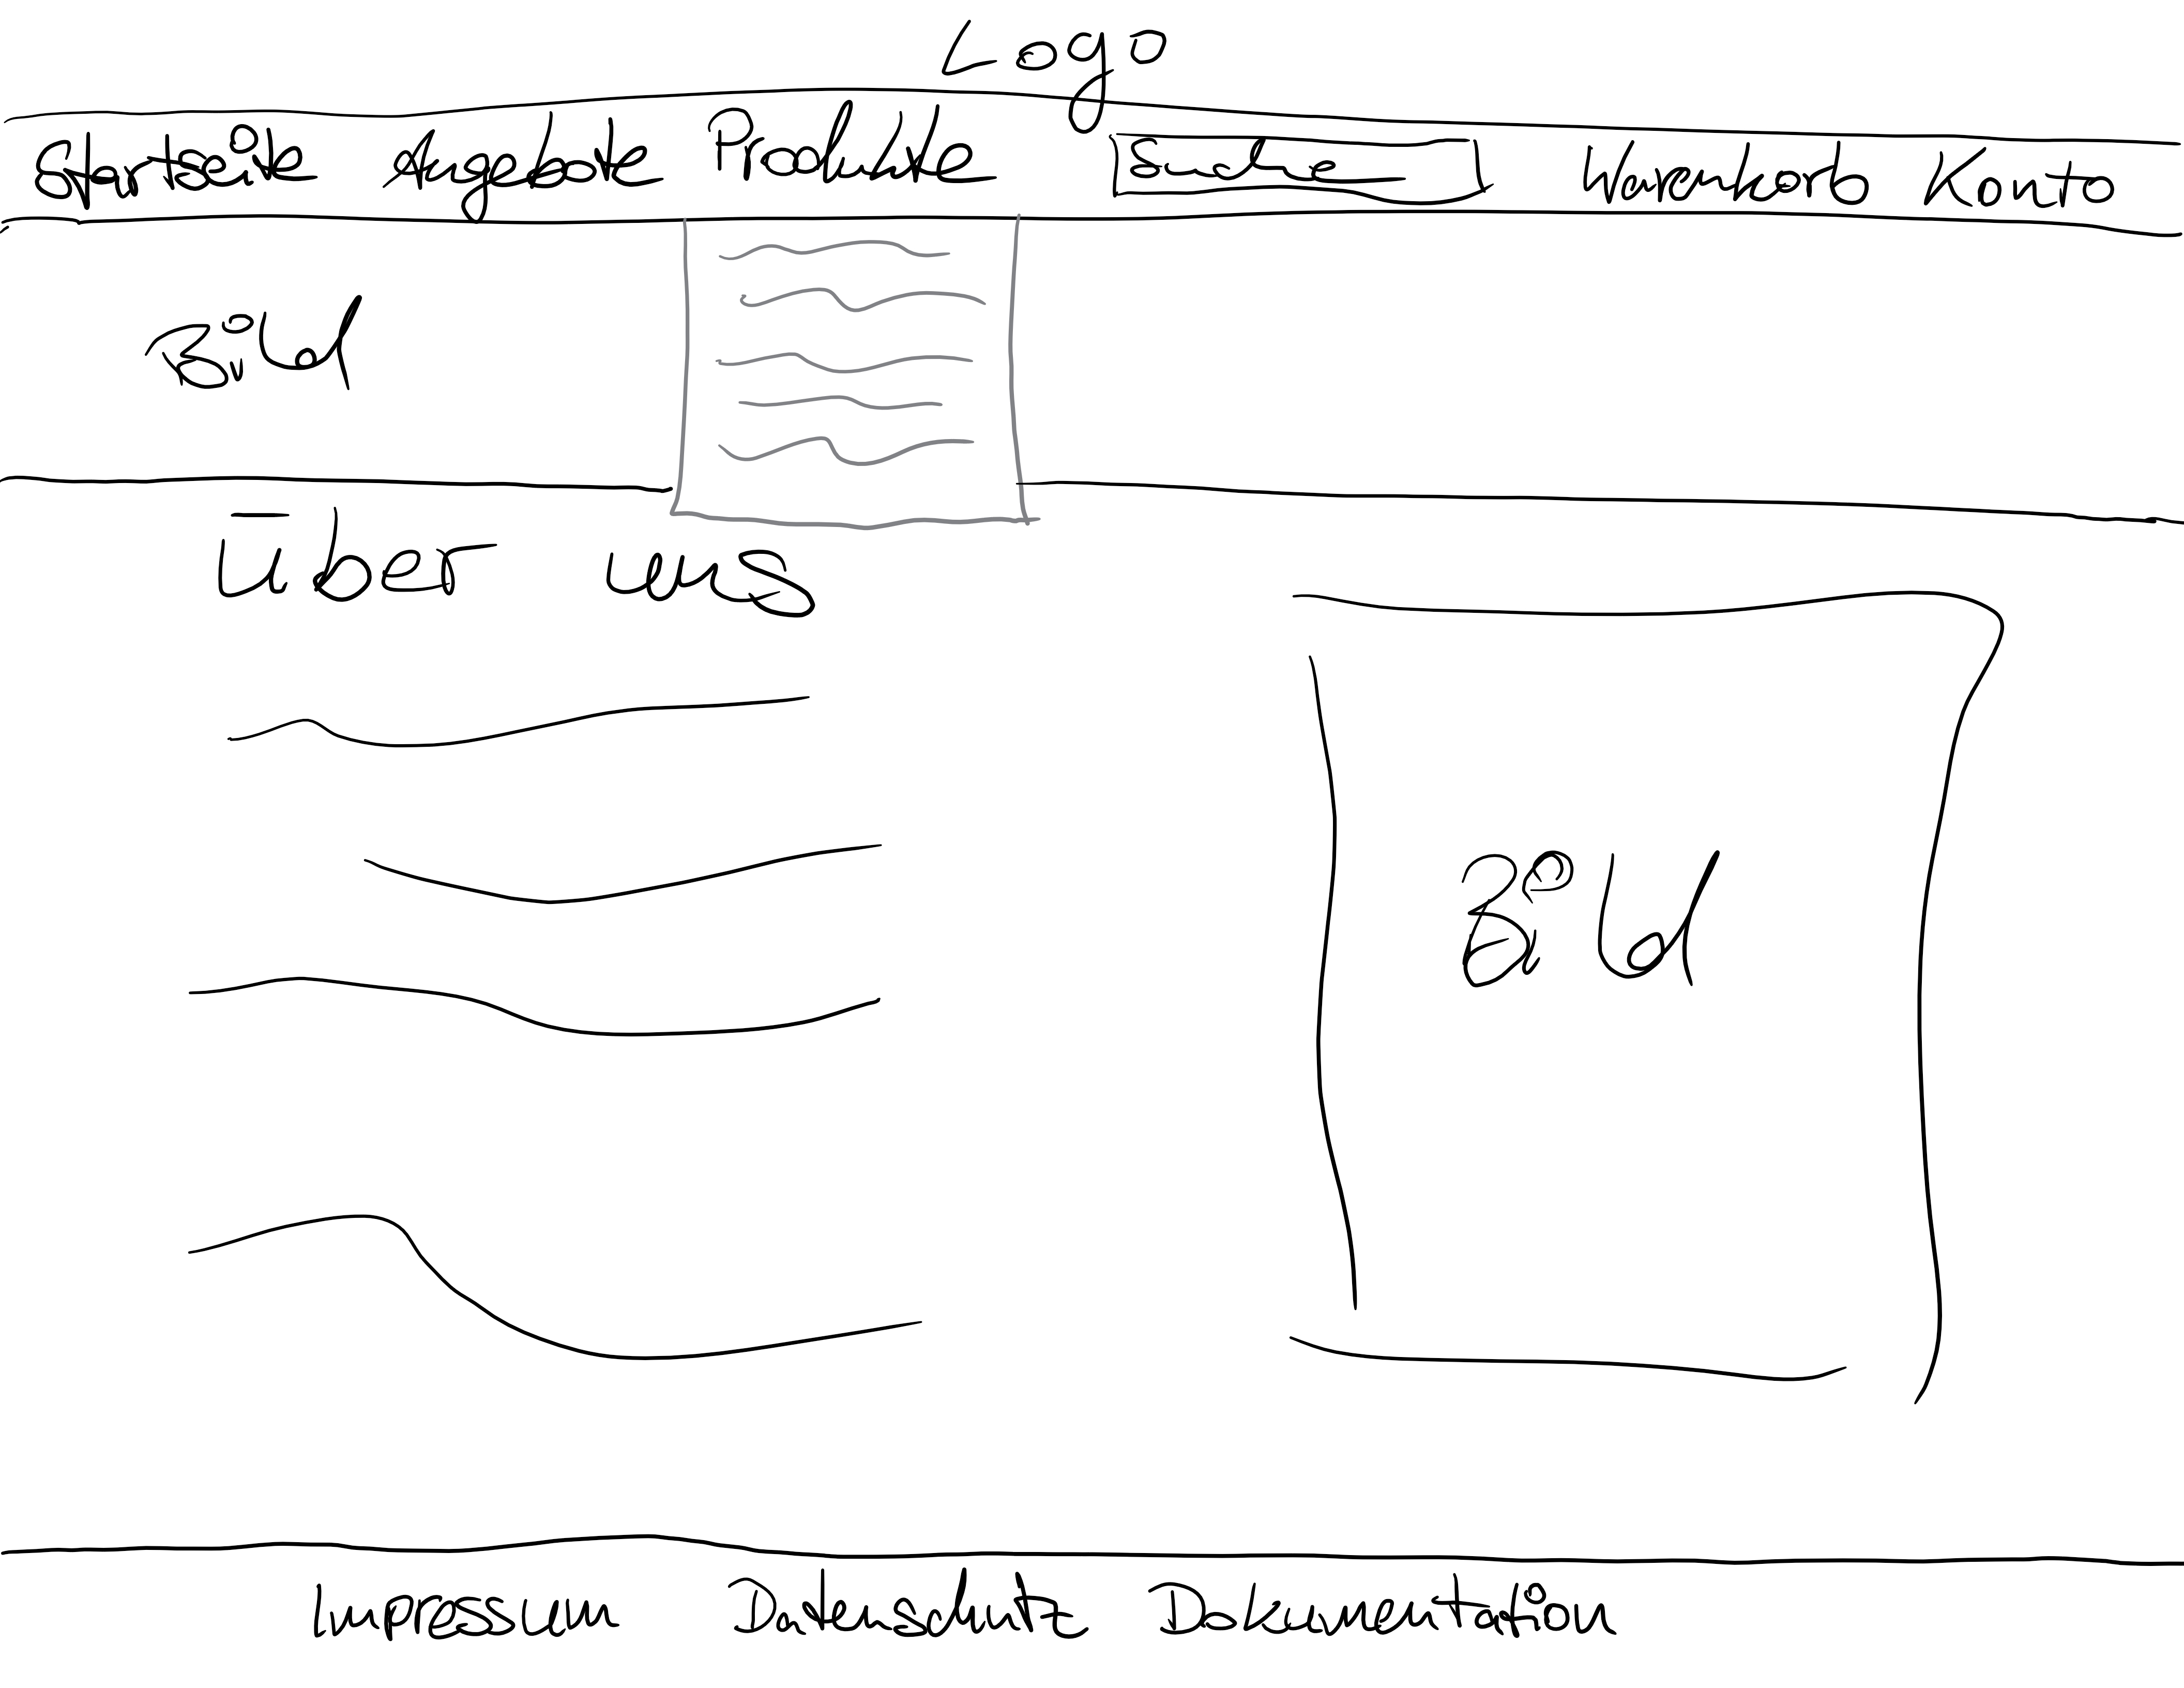 Logo
Startseite Angebote Produkte Suche Warenkorb Konto
Bild
Über uns
Bild
Impressum Datenschutz Dokumentation